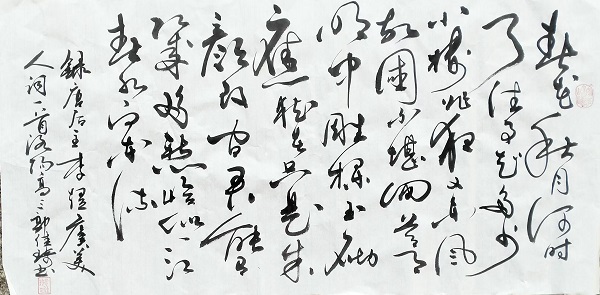 春花秋月何时
了往事知多少
小楼昨夜又东风
故國不堪回首月
明中雕栏玉砌
應猶在只是朱
颜改问君能有
几多愁恰似一江
春水向东流
録唐后主李煜虞美
人词一首洛阳